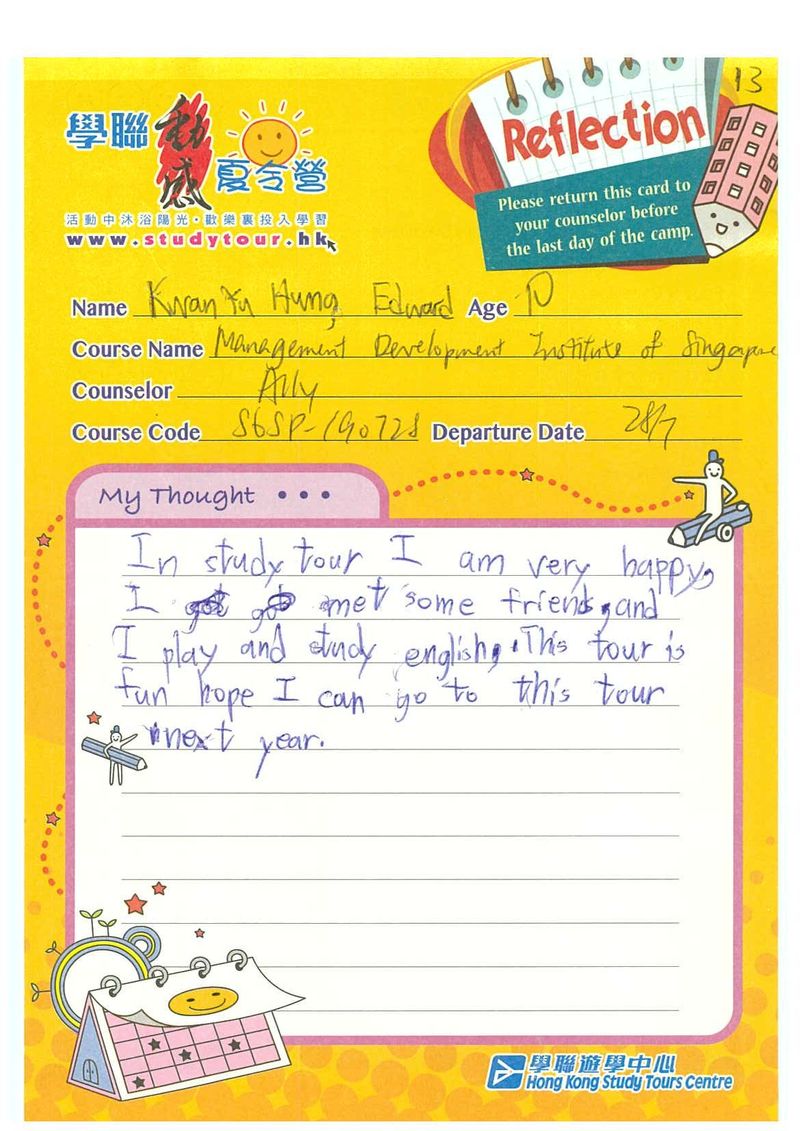 13
Reflection
Please return this card to
your counselor before
the last day of the camp.
學聯動感夏令營
活動中沐浴陽光・歡樂裏投入學習
www.studytour.hk
Name Kwan Yu Hung, Edward Age 10
Course Name Management Development Institute of Singapore
Counselor Ally
Course Code S6SP-190728 Departure Date 28/7
My Thought • • •
In study tour I am very happy,
I met some friends, and
I play and study english, This tour is
fun hope I can go to this tour
next year.
學聯遊學中心
Hong Kong Study Tours Centre